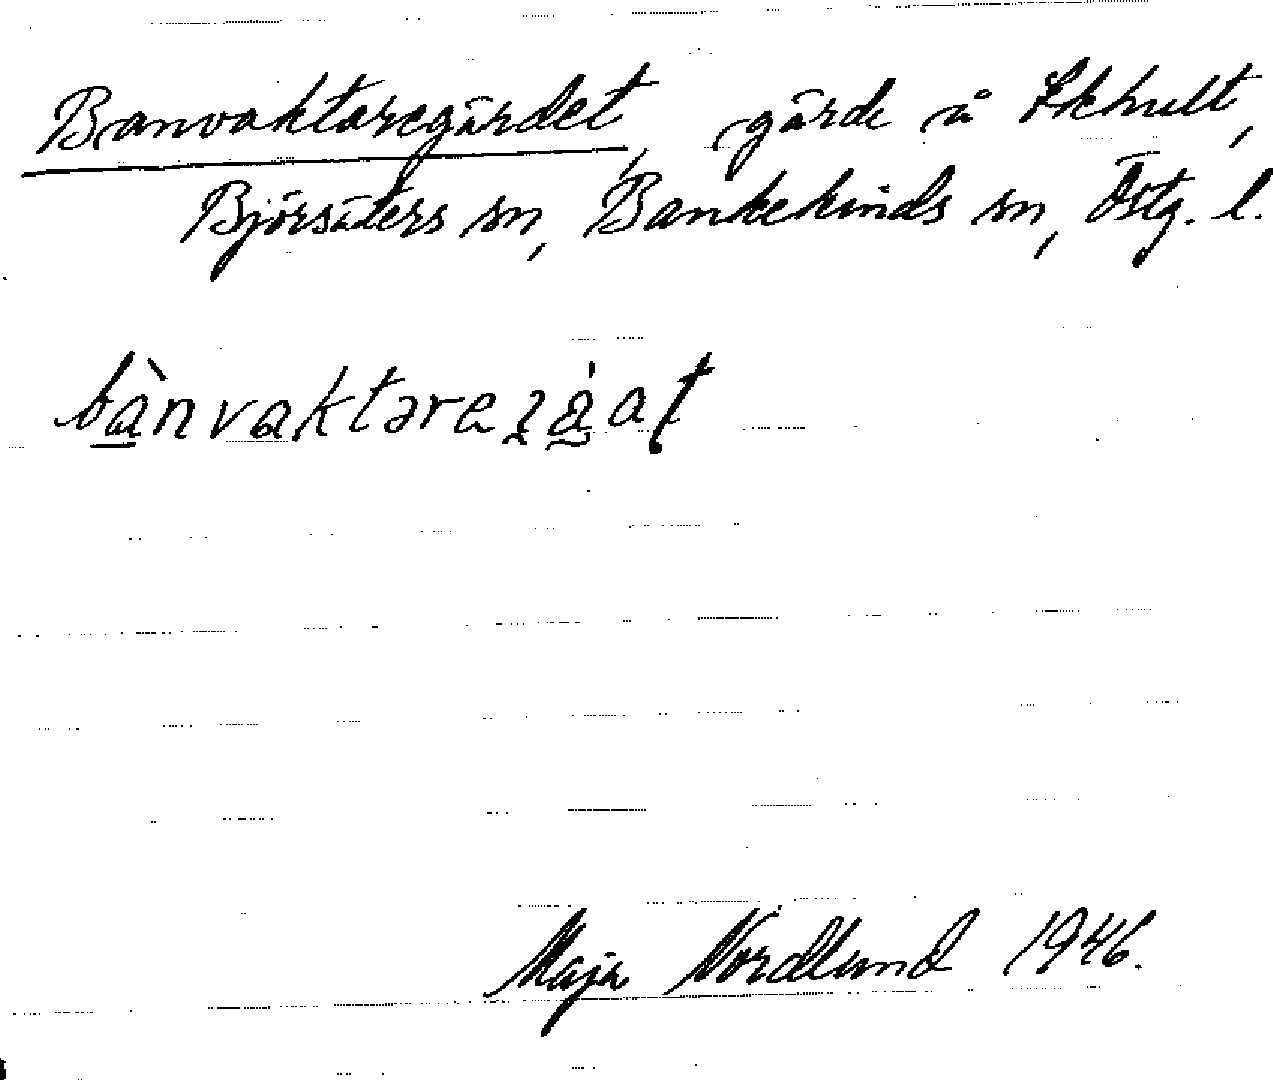 Banvaktaregärdet, gärde å Ekhult,
Björsäters sn, Bankekinds sn, Östg. l.
Maja Nordlund 1946.